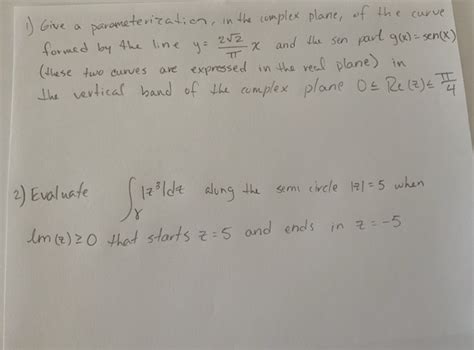 1) Give a parameterization, in the complex plane, of the curve
formed by the line y= 2√2/π x and the sen part g(x)=sen(x)
(these two curves are expressed in the real plane) in
the vertical band of the complex plane 0 ≤ Re(z) ≤ π/4
2) Evaluate ∫γ |z³|dz along the semi circle |z|=5 when
lm(z)≥0 that starts z=5 and ends in z=-5